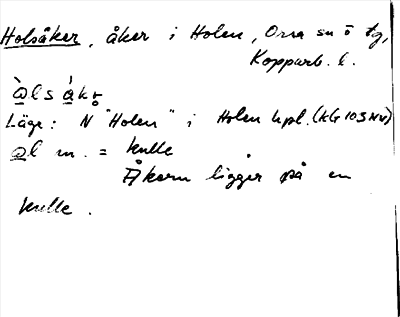 Holsåker, åker i Holen, Orsa sn ö tg,
Kopparb. l.
àls ákr̥
Läge: N "Holen" i Holen hpl. (KG 105 NV)
al m. = kulle
Åkern ligger på en
kulle.